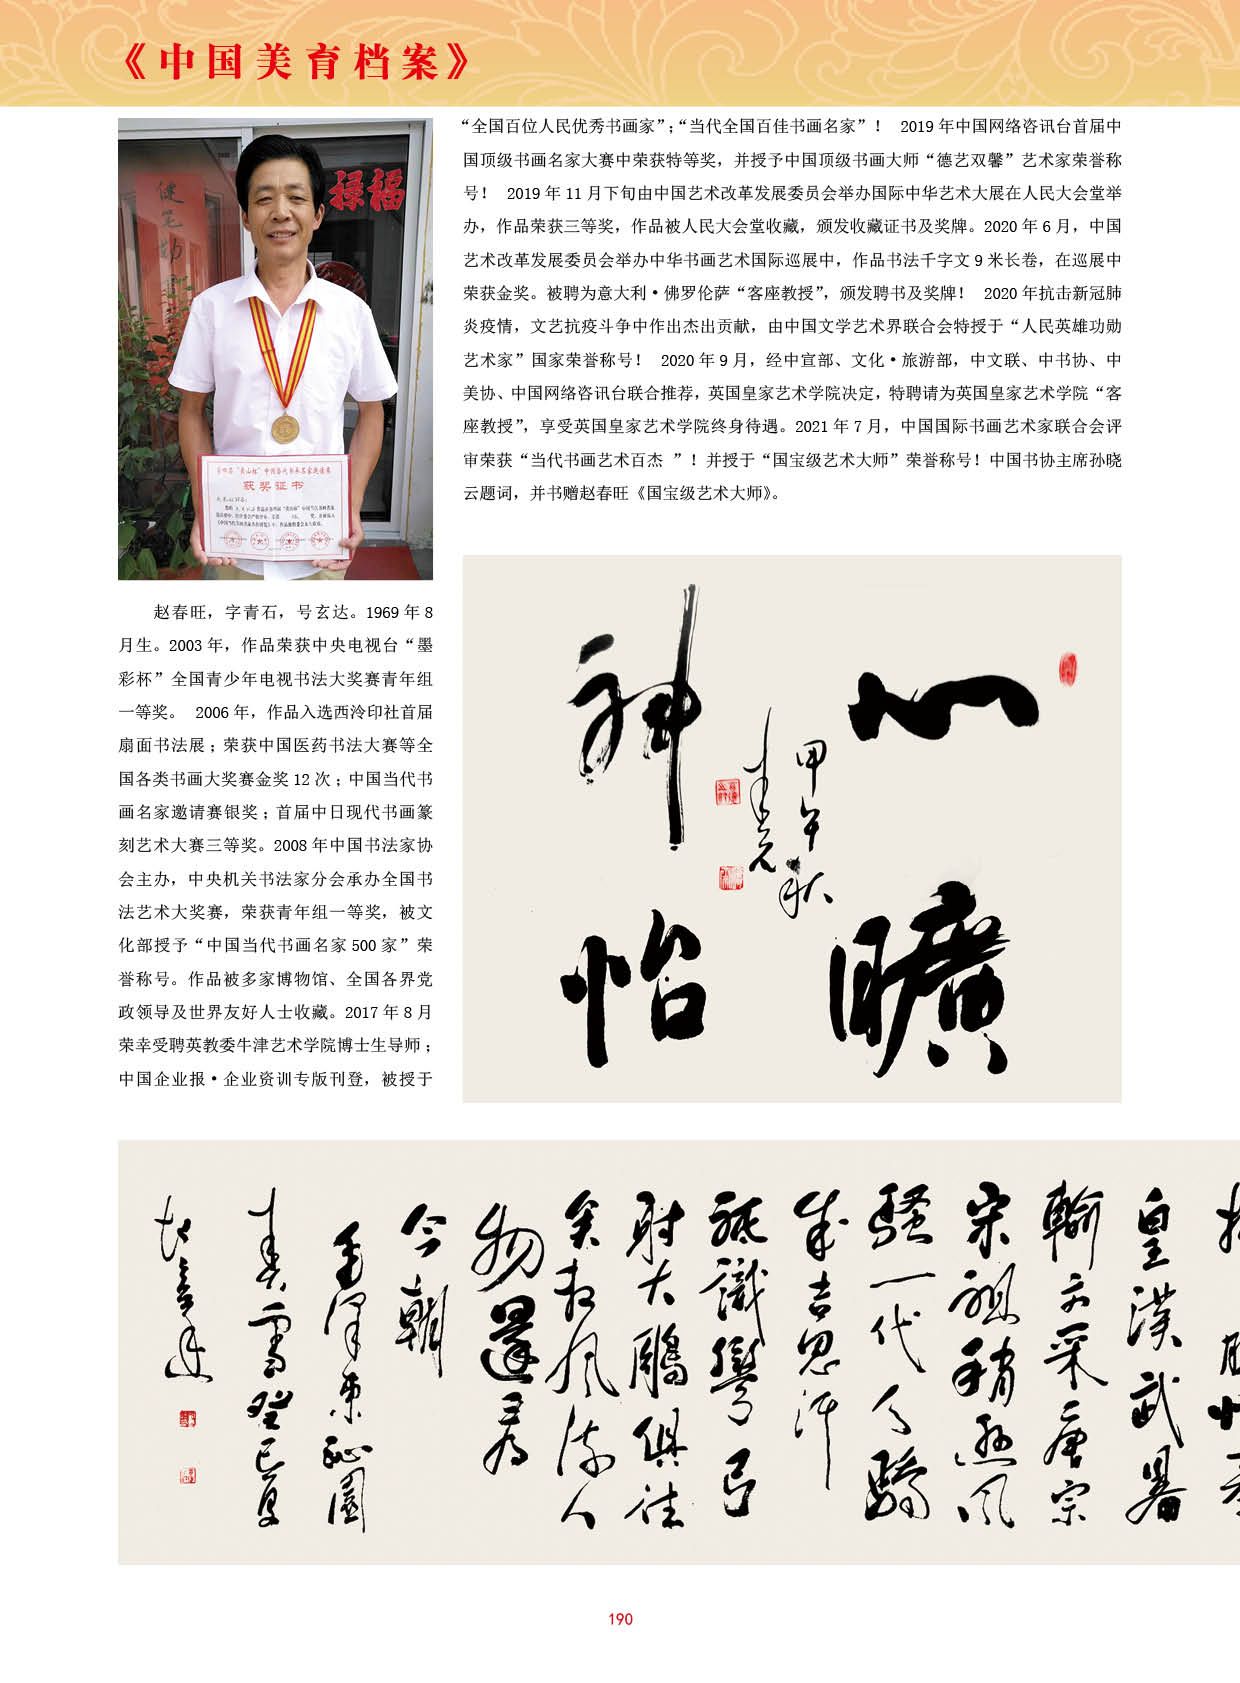 《中国美育档案》
禄福
获奖证书
赵春旺，字青石，号玄达。1969 年 8
月生。2003 年，作品荣获中央电视台“墨
彩杯”全国青少年电视书法大奖赛青年组
一等奖。 2006 年，作品入选西泠印社首届
扇面书法展；荣获中国医药书法大赛等全
国各类书画大奖赛金奖 12 次；中国当代书
画名家邀请赛银奖；首届中日现代书画篆
刻艺术大赛三等奖。2008 年中国书法家协
会主办，中央机关书法家分会承办全国书
法艺术大奖赛，荣获青年组一等奖，被文
化部授予“中国当代书画名家 500 家”荣
誉称号。作品被多家博物馆、全国各界党
政领导及世界友好人士收藏。2017 年 8 月
荣幸受聘英教委牛津艺术学院博士生导师；
中国企业报·企业资训专版刊登，被授于
“全国百位人民优秀书画家”；“当代全国百佳书画名家”！ 2019 年中国网络咨讯台首届中
国顶级书画名家大赛中荣获特等奖，并授予中国顶级书画大师“德艺双馨”艺术家荣誉称
号！ 2019 年 11 月下旬由中国艺术改革发展委员会举办国际中华艺术大展在人民大会堂举
办，作品荣获三等奖，作品被人民大会堂收藏，颁发收藏证书及奖牌。2020 年 6 月，中国
艺术改革发展委员会举办中华书画艺术国际巡展中，作品书法千字文 9 米长卷，在巡展中
荣获金奖。被聘为意大利·佛罗伦萨“客座教授”，颁发聘书及奖牌！ 2020 年抗击新冠肺
炎疫情，文艺抗疫斗争中作出杰出贡献，由中国文学艺术界联合会特授于“人民英雄功勋
艺术家”国家荣誉称号！ 2020 年 9 月，经中宣部、文化·旅游部，中文联、中书协、中
美协、中国网络咨讯台联合推荐，英国皇家艺术学院决定，特聘请为英国皇家艺术学院“客
座教授”，享受英国皇家艺术学院终身待遇。2021 年 7 月，中国国际书画艺术家联合会评
审荣获“当代书画艺术百杰 ”！并授于“国宝级艺术大师”荣誉称号！中国书协主席孙晓
云题词，并书赠赵春旺《国宝级艺术大师》。
心曠
神怡
甲午秋
皇漢武畧
輸文采唐宗
宋祖稍遜風
騷一代天驕
成吉思汗
祇識彎弓
射大鵰俱往
矣数風流人
物還看
今朝
毛澤東沁園
春雪癸巳夏
190